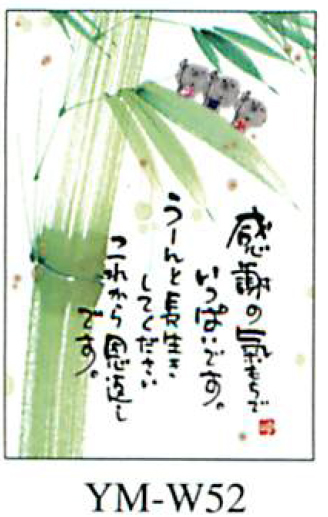 感謝の氣もちで
いっぱいです。
うーんと長生き
してください
これから恩返し
です。
YM-W52